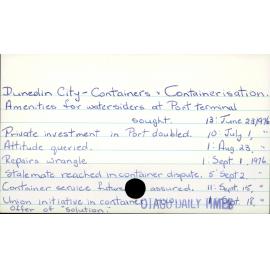 Dunedin City - Containers & Containerisation.
Amenities for watersiders at Port terminal
sought. 13: June 23, 1976
Private investment in Port doubled. 10: July 1, "
Attitude queried. 1: Aug. 23, "
Repairs wrangle 1: Sept 1, 1976
Stalemate reached in container dispute. 5: Sept 2 "
Container service future assured. 11: Sept. 15, "
Union initiative in container 18, "
Offer of "solution."
OTAGO DAILY TIMES